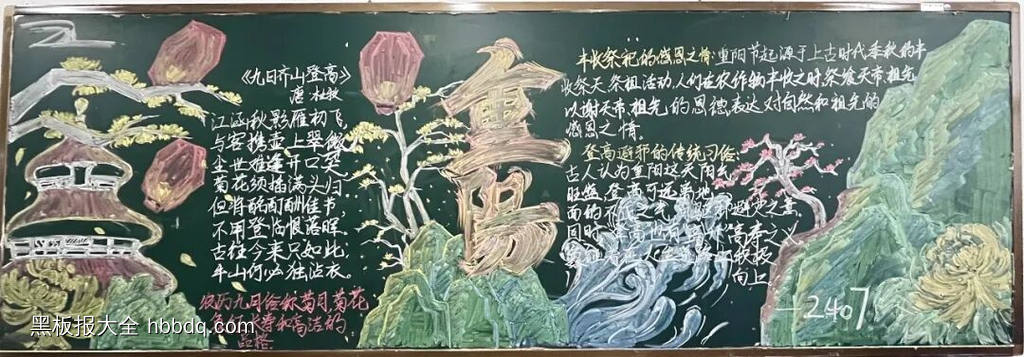 《九日齐山登高》
唐 杜牧
江涵秋影雁初飞,
与客携壶上翠微
尘世难逢开口笑
菊花须插满头归
但将酩酊酬佳节
不用登临恨落晖
古往今来只如此,
牛山何必独沾衣。
农历九日俗称菊月,菊花
象征长寿和高洁的
品格.
重
阳
丰收祭祀的感恩之情:重阳节起源于上古时代季秋的丰
收祭天、祭祖活动,人们在农作物丰收之时祭飨天帝、祖先,
以谢天帝、祖先,的恩德,表达对自然和祖先的
感恩之情.
登高避邪的传统习俗:
古人认为重阳这天阳气
旺盛,登高可远离地
面的不正之气
高寿之义
向上.
2407
黑板报大全 hbbdq.com